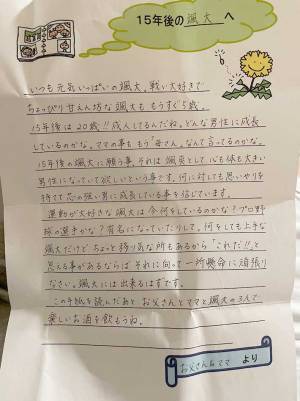 15年後の 颯大 へ
いつも元気いっぱいの颯大。戦い大好きで
ちょっぴり甘えん坊な颯大ももうすぐ5歳。
15年後は20歳!!成人してるんだね。どんな男性に成長
しているのかな。ママの事ももう「母さん」なんて言ってるのかな。
15年後の颯大に願う事、それは颯爽として心も体も大きい
男性になっていて欲しいという事です。何に対しても思いやりを
持てて芯の強い男に成長している事を信じています。
運動が大好きな颯大は今何をしているのかな?プロ野
球の選手かな?有名になっていたりして。何をしても上手な
颯大だけど、ちょっと移り気な所もあるから「これだ!!」と
思える事があるならば それに向って一所懸命に頑張り
なさい。颯大には出来るはずです。
この手紙を読んだあと お父さんとママと颯大の3人で
楽しいお酒を飲もうね。
お父さん&ママ より